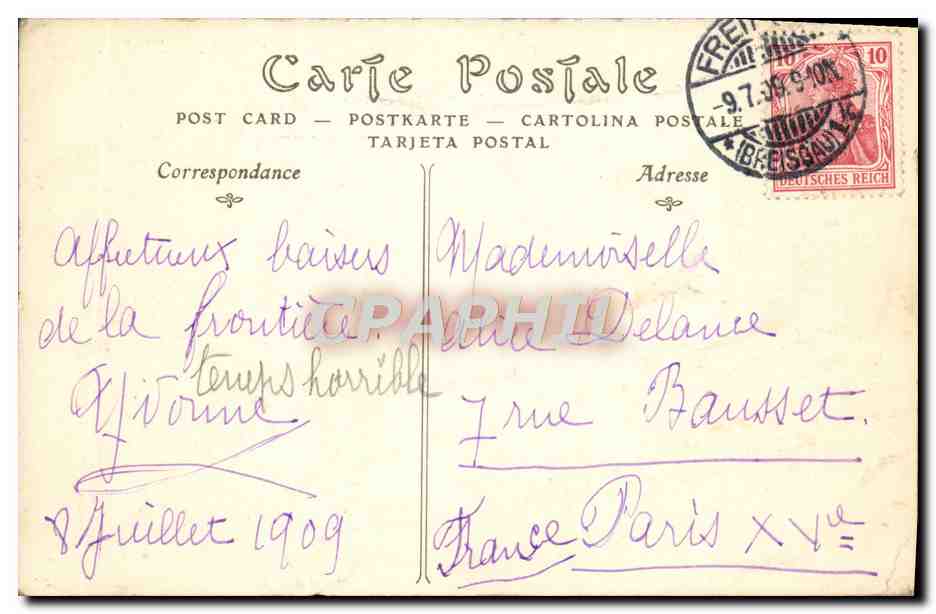 Carte Postale
POST CARD — POSTKARTE — CARTOLINA POSTALE
TARJETA POSTAL
Correspondance
Affectueux baisers
de la frontière.
temps horrible
Yvonne
8 Juillet 1909
Adresse
Mademoiselle
Delance
7 rue Bausset.
Paris XVe
France
10 10
DEUTSCHES REICH
-9.7.09.9-10N.
*(BREISGAU)1.
CPAPHIL